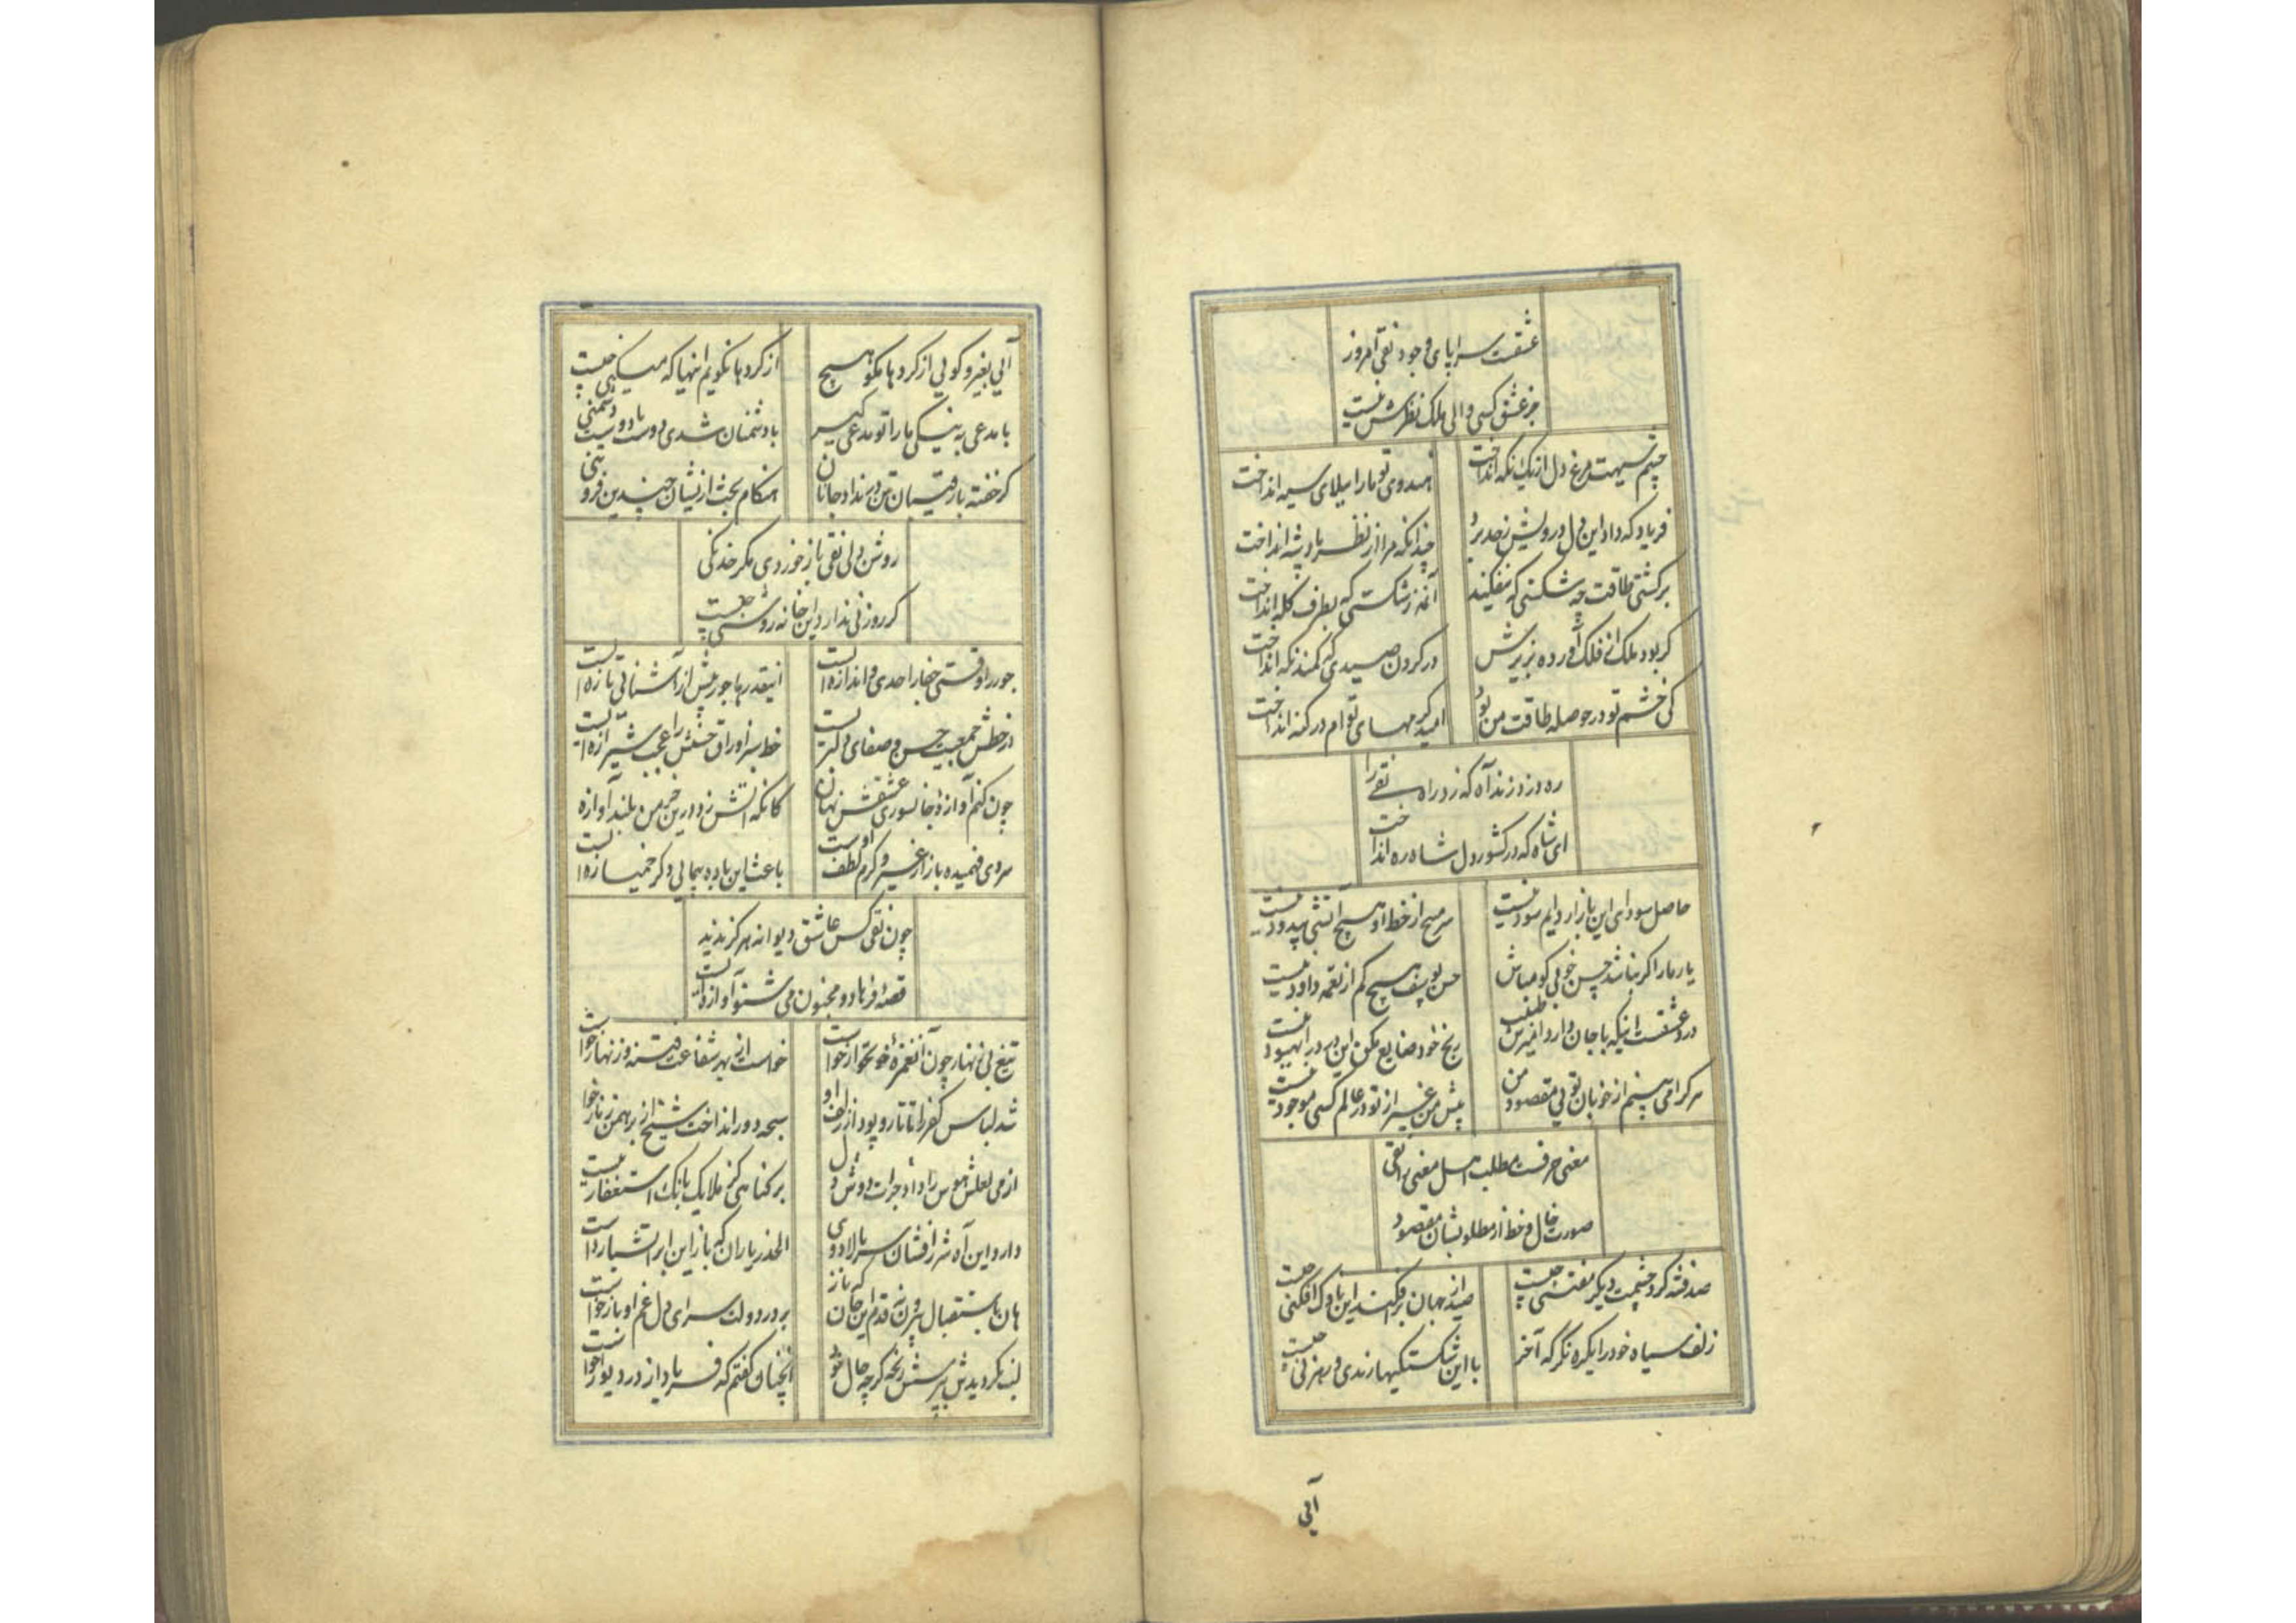 عشقست سراپای وجود نقی امروز
جز عشق کسی والی ملک نظرش نیست
چشم سیهت مرغ دل از یک نگه انداخت
هندوی تو ما را ببلای سیه انداخت
فریاد که داد این دل درویش ز حد برد
چندانکه مرا از نظر پادشه انداخت
بر کشتی طاقت چه شکستی که نیفکند
آنهم ز شکستی که بطرف کله انداخت
گر بود ملک از فلک آورده بزیرش
در گردن صیدی که کمند نگه انداخت
کی خشم تو در حوصله طاقت من بود
امید کرمهای توام در گنه انداخت
ره دزد زند آه که زد راه نقی را
ای شاه که در کشور دل شاه ره انداخت
حاصل سودای این بازار دایم سود نیست
هیچ از خط او هیچ آتشی بیدود نیست
یار ما را گر نباشد حسن خوبی گو مباش
حسن یوسف هیچ کم از نغمه داود نیست
درد عشقست اینکه با جان دارد آمیزش طبیب
رنج خود ضایع مکن این درد را بهبود نیست
هر کرا می بینم از خوبان تویی مقصود من
پیش من غیر از تو در عالم کسی موجود نیست
معنی حرفست مطلب اهل معنی را نقی
صورت خال و خط از مطلوبشان مقصود
صد فتنه کرد چشمت دیگر مفتنی چیست
صید از جهان برافکند این ناوک افکنی چیست
زلف سیاه خود را یکره نگر که آخر
با این شکستگیها رندی و رهزنی چیست
آیی
آیی بغیر و گویی از کردها مگو هیچ
از کردها نگویم اینها که میکنی چیست
با مدعی به نیکی ما را تو مدعی گیر
با دشمنان شدی دوست با دوست دشمنی چیست
گر خفته با رقیبان تن در نداد جانان
هنگام بحث ازیشان چندین فروتنی
روشن دلی نقی باز خوردی مگر خدنگی
گر روزنی ندارد این خانه روشنی چیست
جور را وقتی جفا را حدی و اندازه ایست
اینقدرها جور بیش از آشنائی تازه ایست
در خطش جمعیت حسن و صفای دلبریست
خط سبز اوراق حسنش را عجب شیرازه ایست
چون کنم آوازهٔ جانسوزی عشقش نهان
کانکه آتش زد درین خرمن بلند آوازه ایست
سردی فهمیده باز از غیر و گرم لطف اوست
باعث این باده پیمایی دگر خمیازه ایست
چون نقی کس عاشق دیوانه هرگز ندید
قصهٔ فرهاد و مجنون می شنو آوازه ایست
تیغ بی زنهار چون آن غمزهٔ خونخوار خواست
خواست از بهر شفاعت فتنه و زنهار خواست
شد لباس کفر را تا تار و پود از زلف او
سبحه دور انداخت شیخ از برهمن زنار خواست
از می لعلش هوس را داد جرات دوش دل
بر گناهی کز ملایک بانگ استغفار خواست
دارد این آه شرر افشان سر بالا دوی
الحذر یاران که باز این ابر آتشبار خواست
هان باستقبال بیرون نه قدم ای جان که باز
بر در دولت سرای دل غم او بار خواست
لب نکردیدش بپرسش رنجه گر چه حال خود
آنچنان گفتم که فریاد از در و دیوار خواست